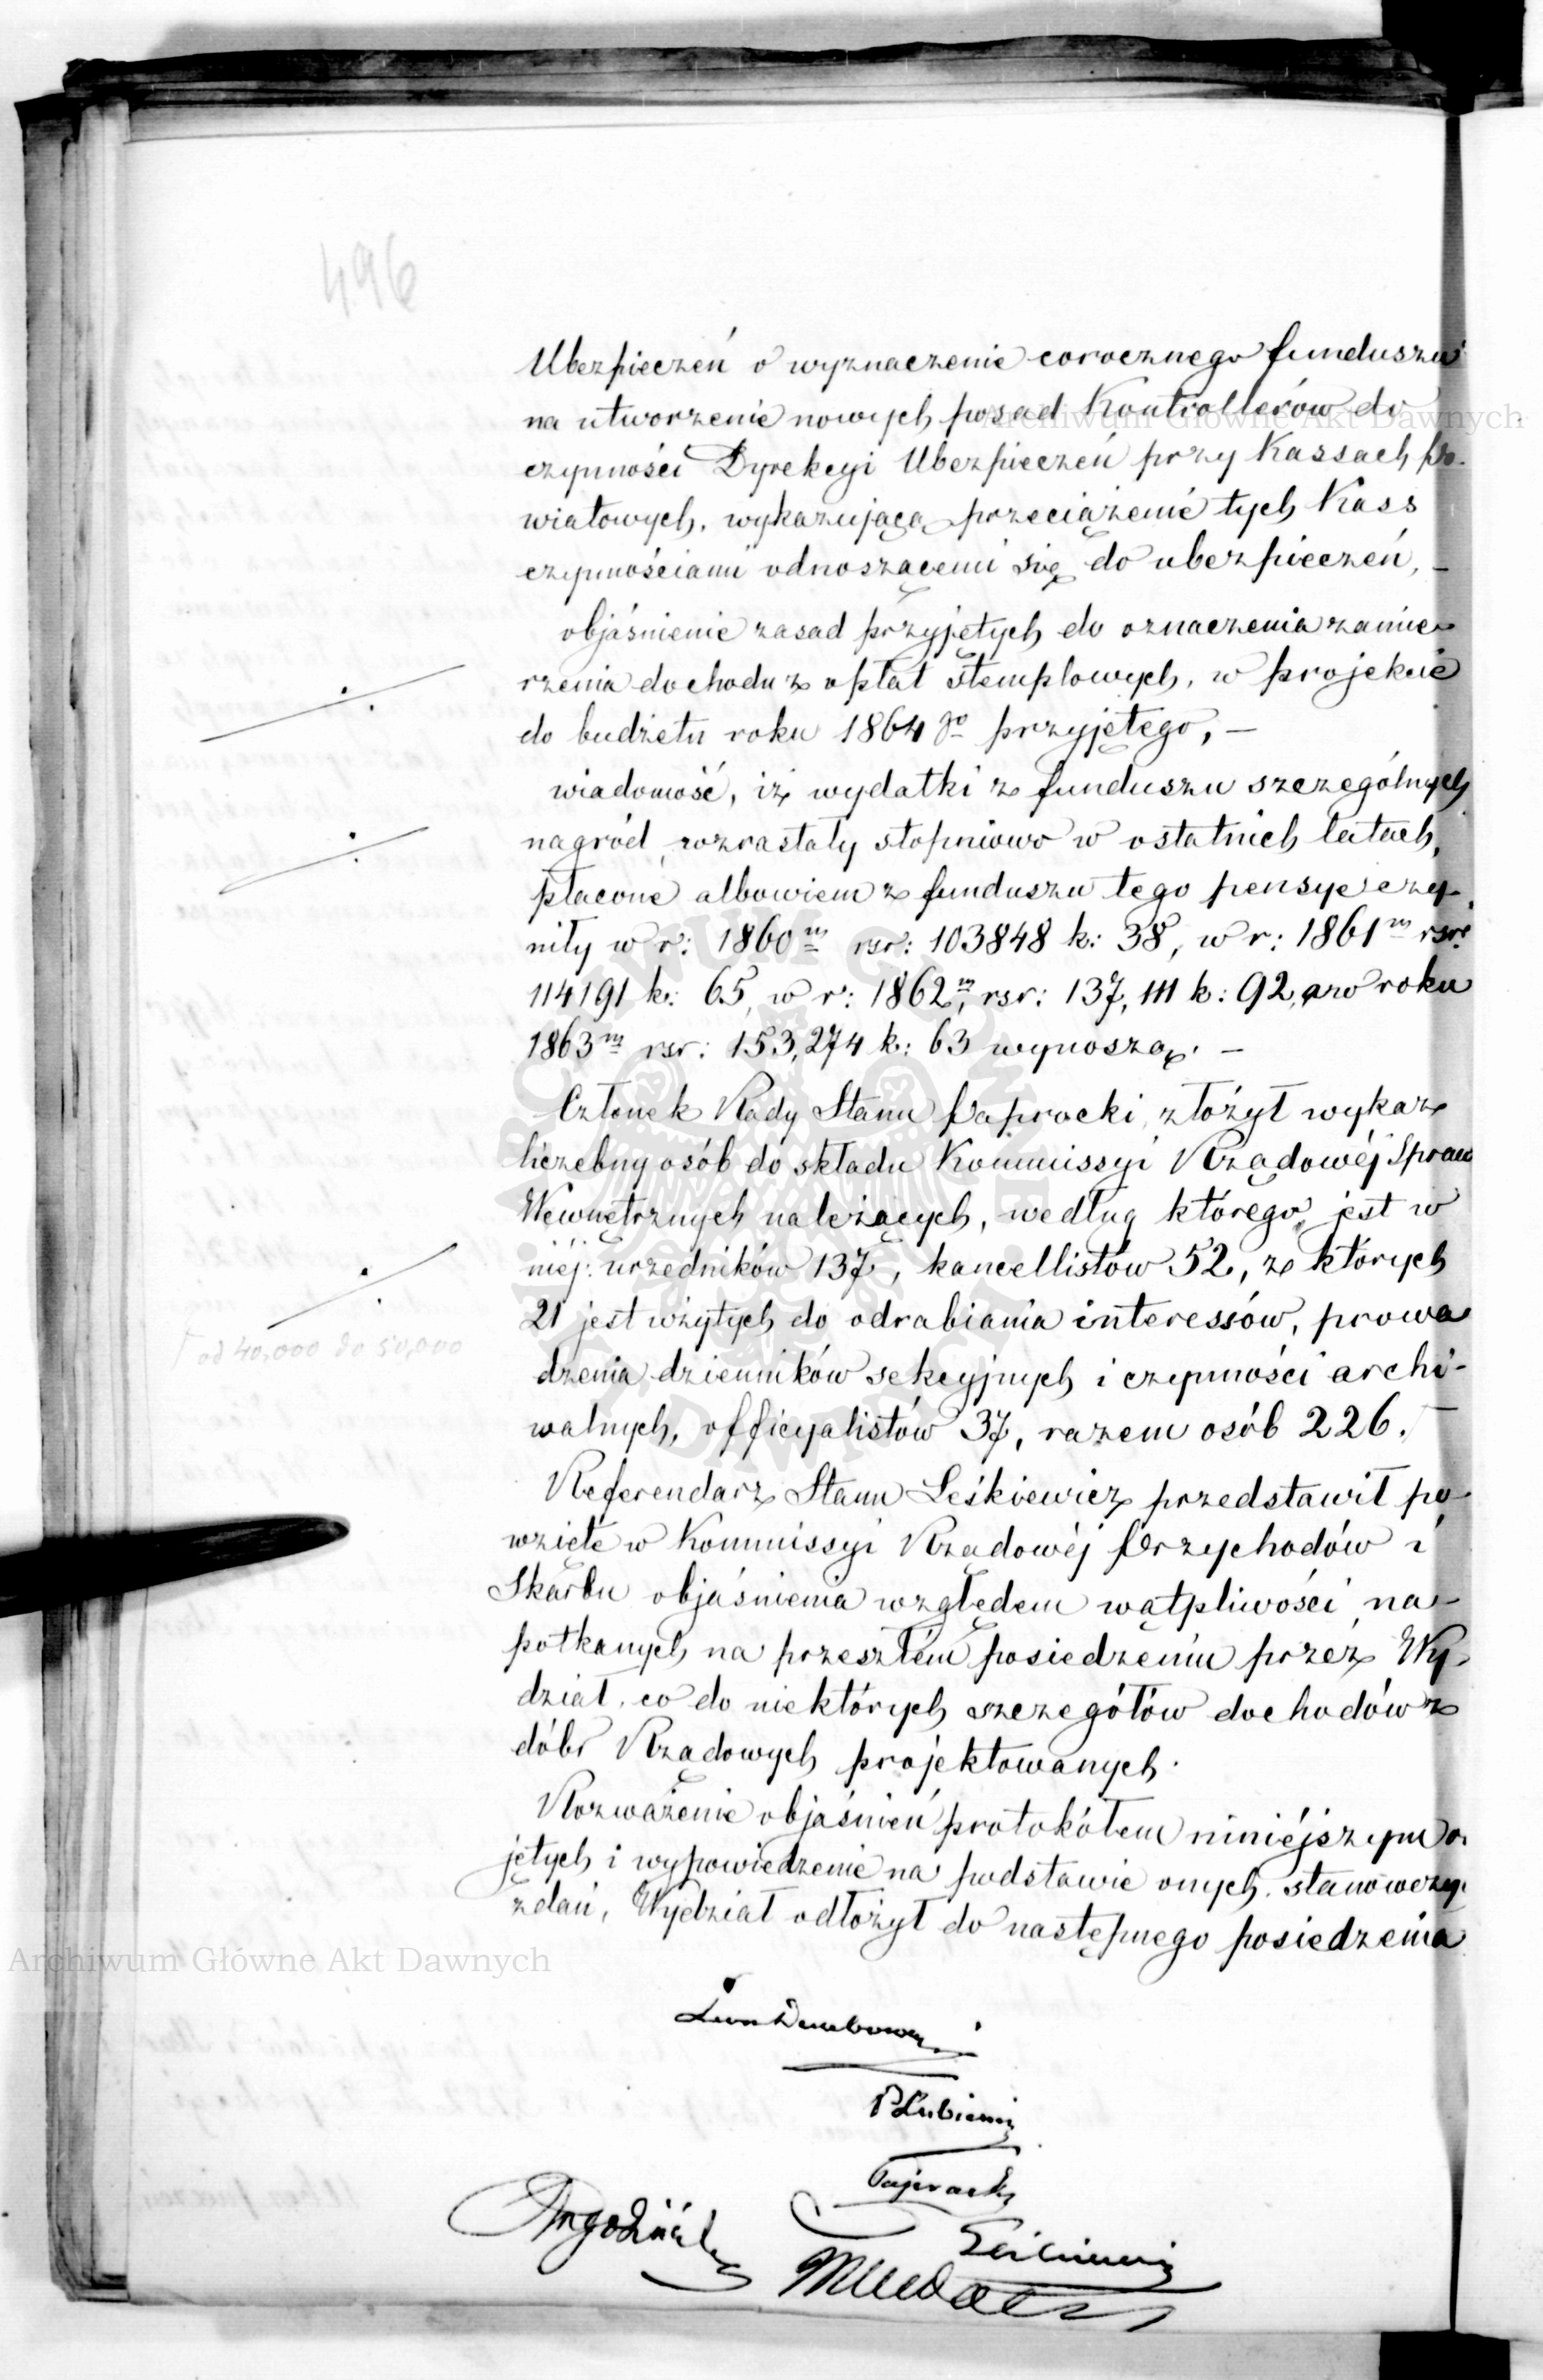 496
Ubezpieczeń o wyznaczenie corocznego funduszu
na utworzenie nowych posad Kontrollerów do
czynności Dyrekcyi Ubezpieczeń przy Kassach po-
wiatowych, wykazującą przeciążenie tych Kass
czynnościami odnoszącemi się do ubezpieczeń, –
objaśnienie zasad przyjętych do oznaczenia zamie-
rzenia dochodu z opłat stemplowych, w projekcie
do budżetu roku 1864go przyjętego, –
wiadomość, iż wydatki z funduszu szczególnych
nagród, wzrastały stopniowo w ostatnich latach,
płacone albowiem z funduszu tego pensye czy-
niły w r: 1860m rsr: 103848 k: 38, w r: 1861m rsr:
114191 k: 65, w r: 1862m, rsr: 137,111 k: 92, a w roku
1863m rsr: 153,274 k: 63 wynoszą. –
Członek Rady Stanu Paprocki, złożył wykaz
liczebny osób do składu Kommissyi Rządowéj Spraw
Wewnętrznych należących, według którego, jest w
niéj: urzędników 137, kancellistów 52, z których
21 jest użytych do odrabiania interessów, prowa
dzenia dzienników sekcyjnych i czynności archi-
walnych, officyalistów 37, razem osób 226.
od 40,000 do 50,000
Referendarz Stanu Leśkiewicz przedstawił po-
wzięte w Kommissyi Rządowéj Przychodów i
Skarbu objaśnienia względem wątpliwości na-
potkanych na przeszłém posiedzeniu przez Wy-
dział, co do niektórych szczegółów dochodów z
dóbr Rządowych projektowanych.
Rozważenie objaśnień protokółem niniéjszym o-
jętych i wypowiedzenie na podstawie onych, stanowczy
zdań, Wydział odłożył do następnego posiedzenia
Leon Dembowski
P Łubieński
Paprocki
Leśkiewicz
Archiwum Główne Akt Dawnych
Archiwum Główne Akt Dawnych